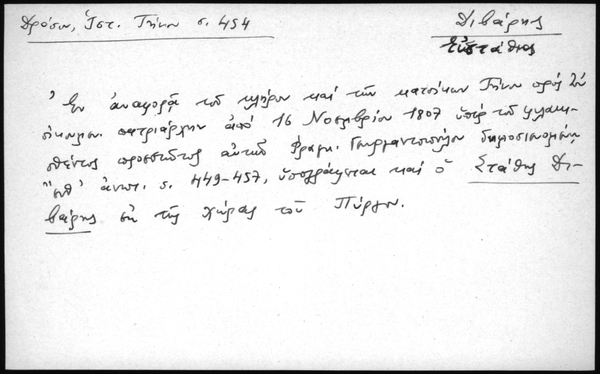 Δρόσου, Ἱστ. Τήνου σ. 454
Διβάρης
Εὐστάθιος
Ἐν ἀναφορᾷ τοῦ κλήρου καὶ τῶν κατοίκων Τήνου πρὸς τὸν
οἰκουμεν. πατριάρχην ἀπὸ 16 Νοεμβρίου 1807 ὑπὲρ τοῦ φυλακι-
σθέντος προεστῶτος αὐτῶν δημοσιευομένῃ
ἀνωτ. σ. 449-457, ὑπογράφεται καὶ ὁ Στάθης Δι-
βάρης ἐκ τῆς χώρας τοῦ Πύργου.